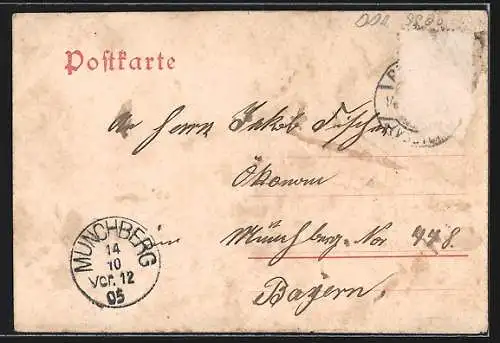 Postkarte
An Herrn Jakob Fischer
Ökonom
in Münchberg No 448.
Bayern.
MÜNCHBERG
14
10
Vor. 12
05